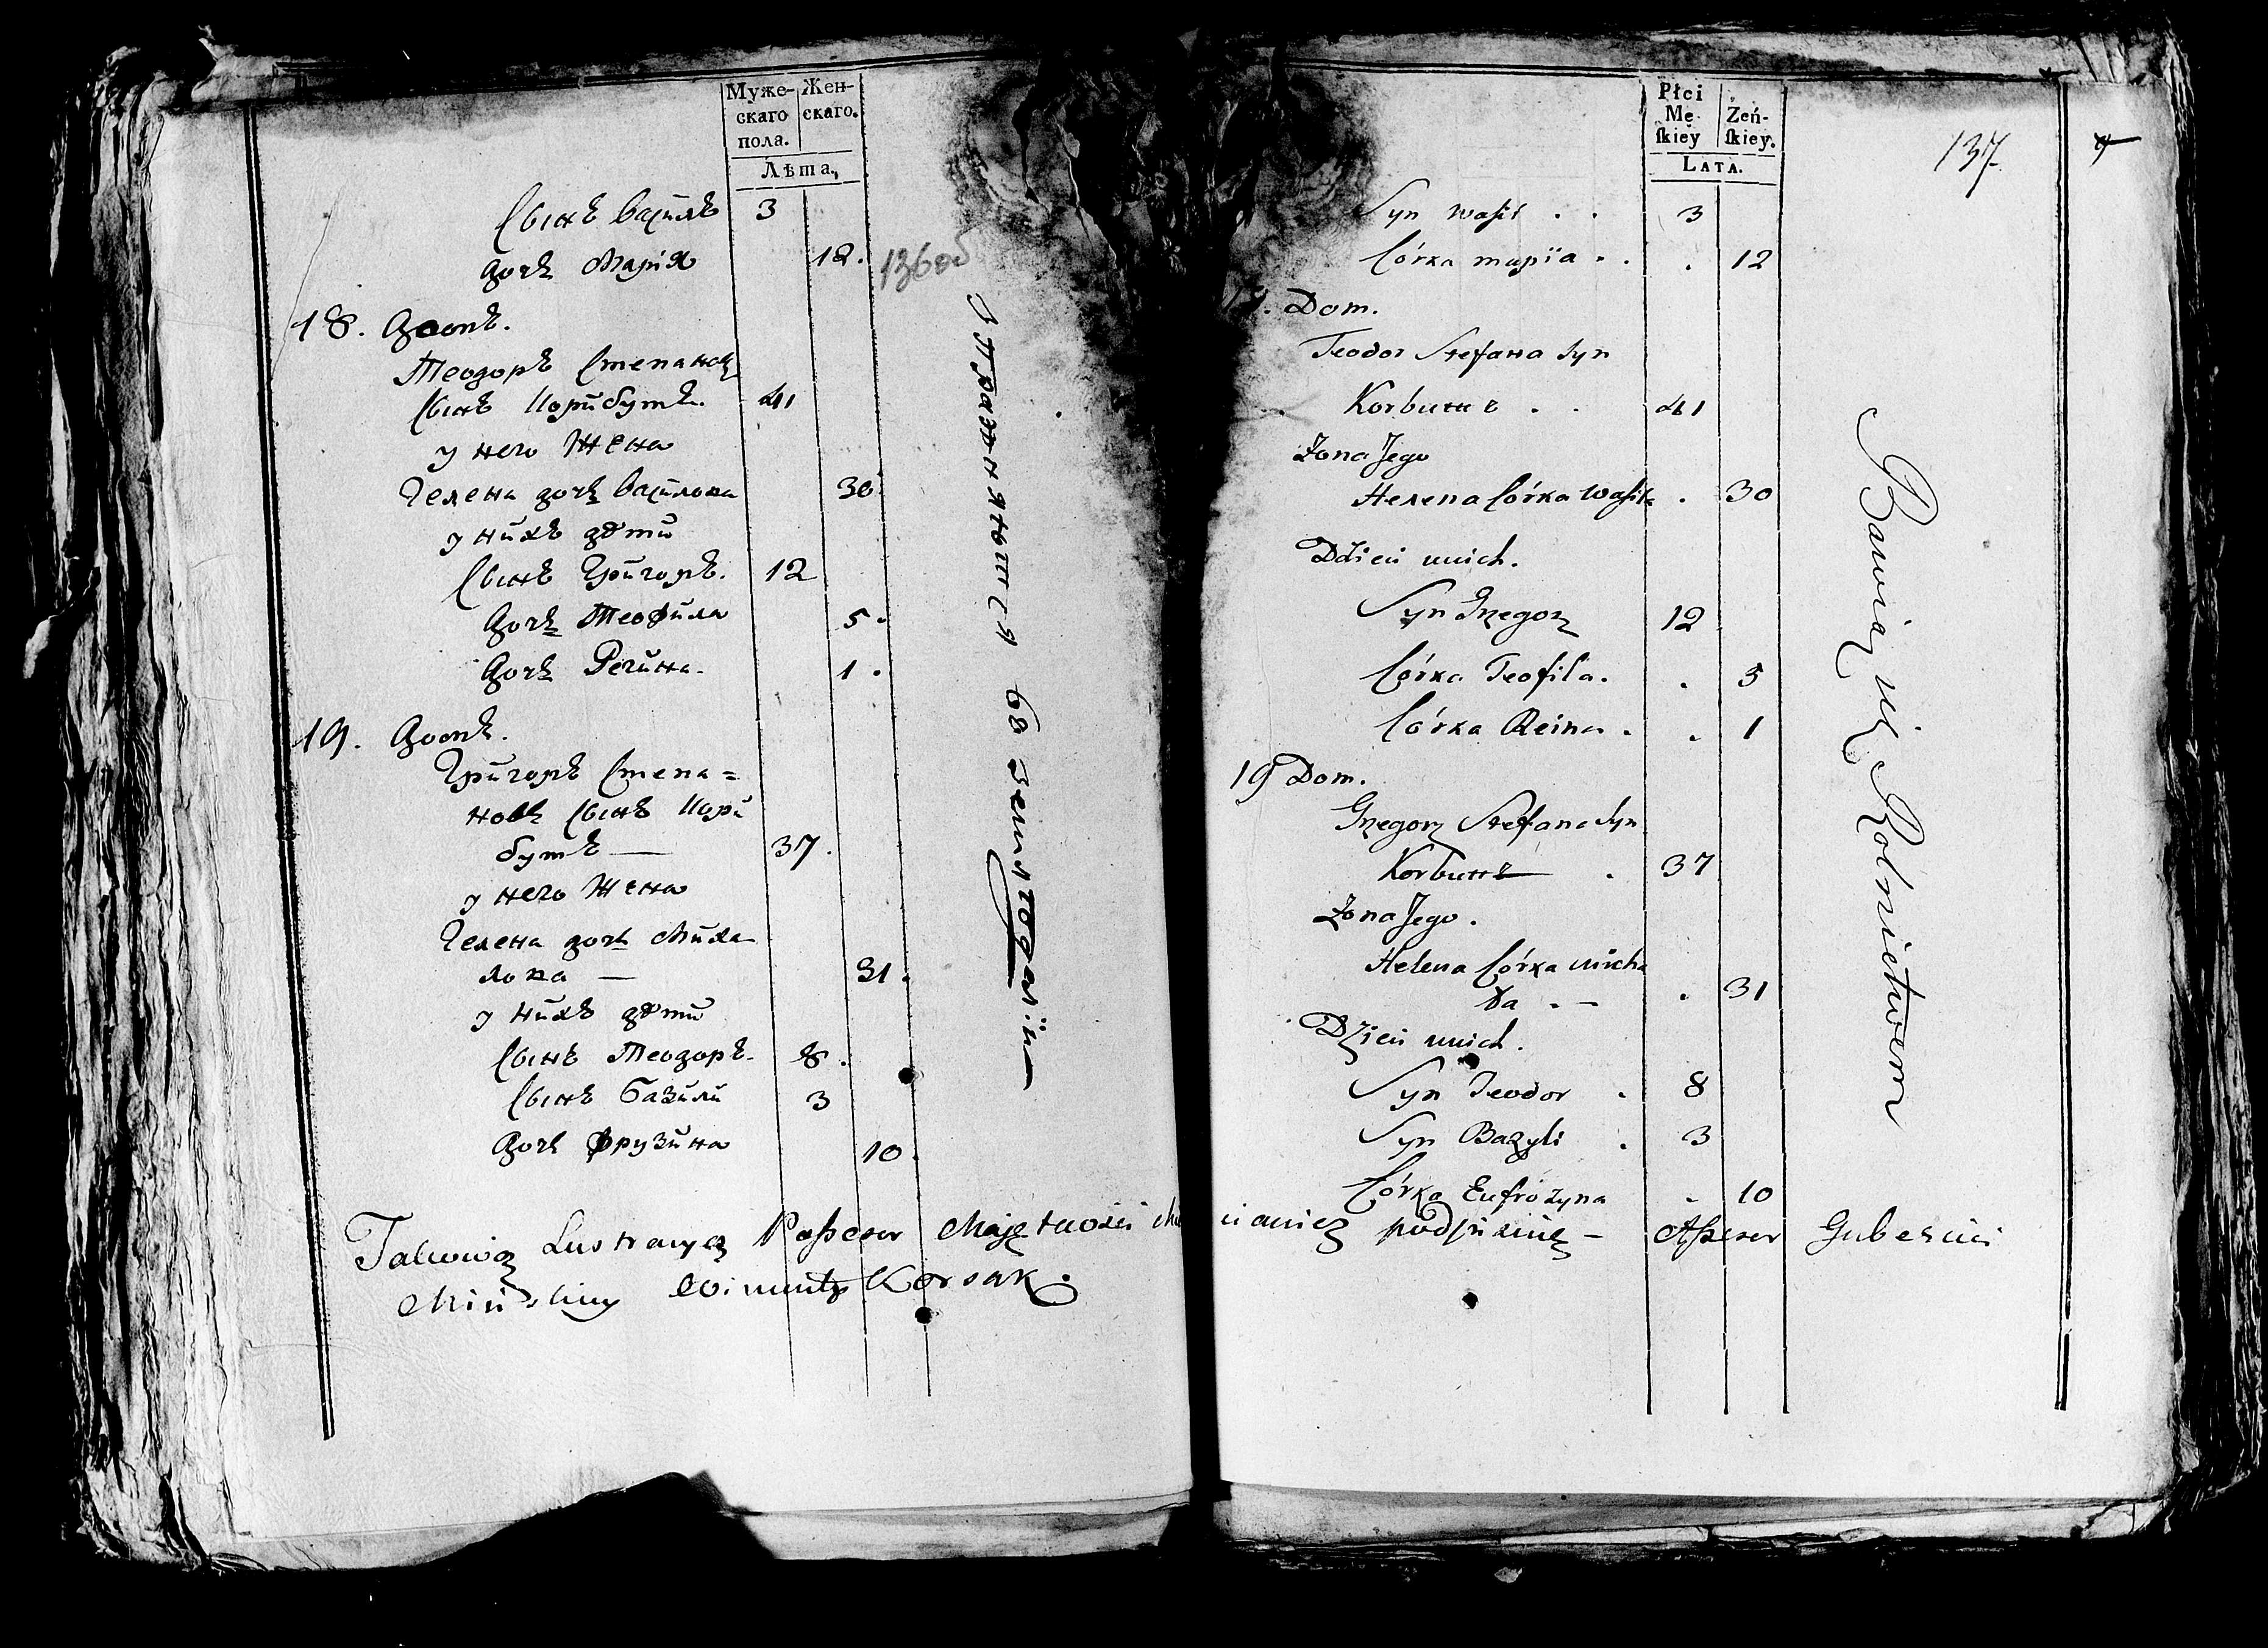 Муже-
скаго
пола.
Жен-
скаго.
Лѣта.
Сынъ Василь 3
дочь Марія 12.
136об
18. Домъ.
Теодоръ Степановъ
Сынъ Корибутъ. 41
у него Жена
Гелена дочь Василова 30
у нихъ дѣти
Сынъ Григоръ. 12
дочь Теофила 5.
дочь Регина. 1.
19. Домъ.
Григоръ Степа=
новъ Сынъ Кори
бутъ — 37.
у него Жена
Гелена дочь Миха
лова — 31.
у нихъ дѣти
Сынъ Теодоръ. 8.
Сынъ Базили 3
дочь Фрузина 10.
Упражняются въ земледѣліи
Płci
Mę
skiey
Żeń-
skiey.
LATA.
137
Syn Wasil . . 3
Córka Maryia . . . 12
. Dom.
Teodor Stefana Syn
Korbutt . . 41
Żona Jego
Helena Córka Wasila . 30
Dzieci u nich.
Syn Grzegorz 12
Córka Teofila. . 5
Córka Reina . . 1
19 Dom.
Grzegorz Stefana Syn
Korbutt . 37
Żona Jego.
Helena Córka Micha
ła . — . 31
Dzieci u nich.
Syn Teodor . 8
Syn Bazyli . 3
Córka Eufrozyna . 10
Bawią się Rolnictwem
Takową Lustracyą Possesor Majętności podpisuię — Assesor Gubernii
Mińskiey Wincenty Korsak.